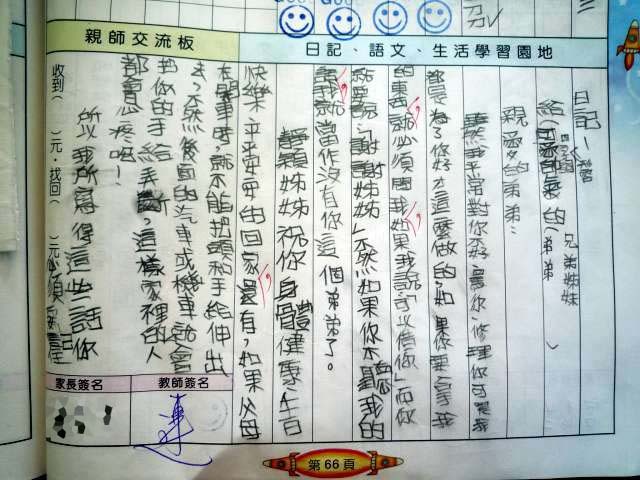 日記、語文、生活學習園地
親師交流板
日記—
給(可愛的親愛的(弟弟
兄弟姊妹
親愛的弟弟：
雖然我平常對你不好
都是為了你好才這麼做的，如果你要拿我
的東西就必須問我，如果我說「可以借你」而你
就要說：「謝謝姊姊」不然如果你不聽我的
話，我就當作沒有你這個弟弟了。
靜穎姊姊祝你身體健康、天天
快樂、平平安安的回家，還有，如果父母
在開車時，就不能把頭和手給伸出
去，不然後面的汽車或機車就會
把你的手給弄斷，這樣家裡的人
都會心疼啦！
所以我所寫得這些話你
必須
收到( )元，找回( )元
家長簽名
教師簽名
第66頁